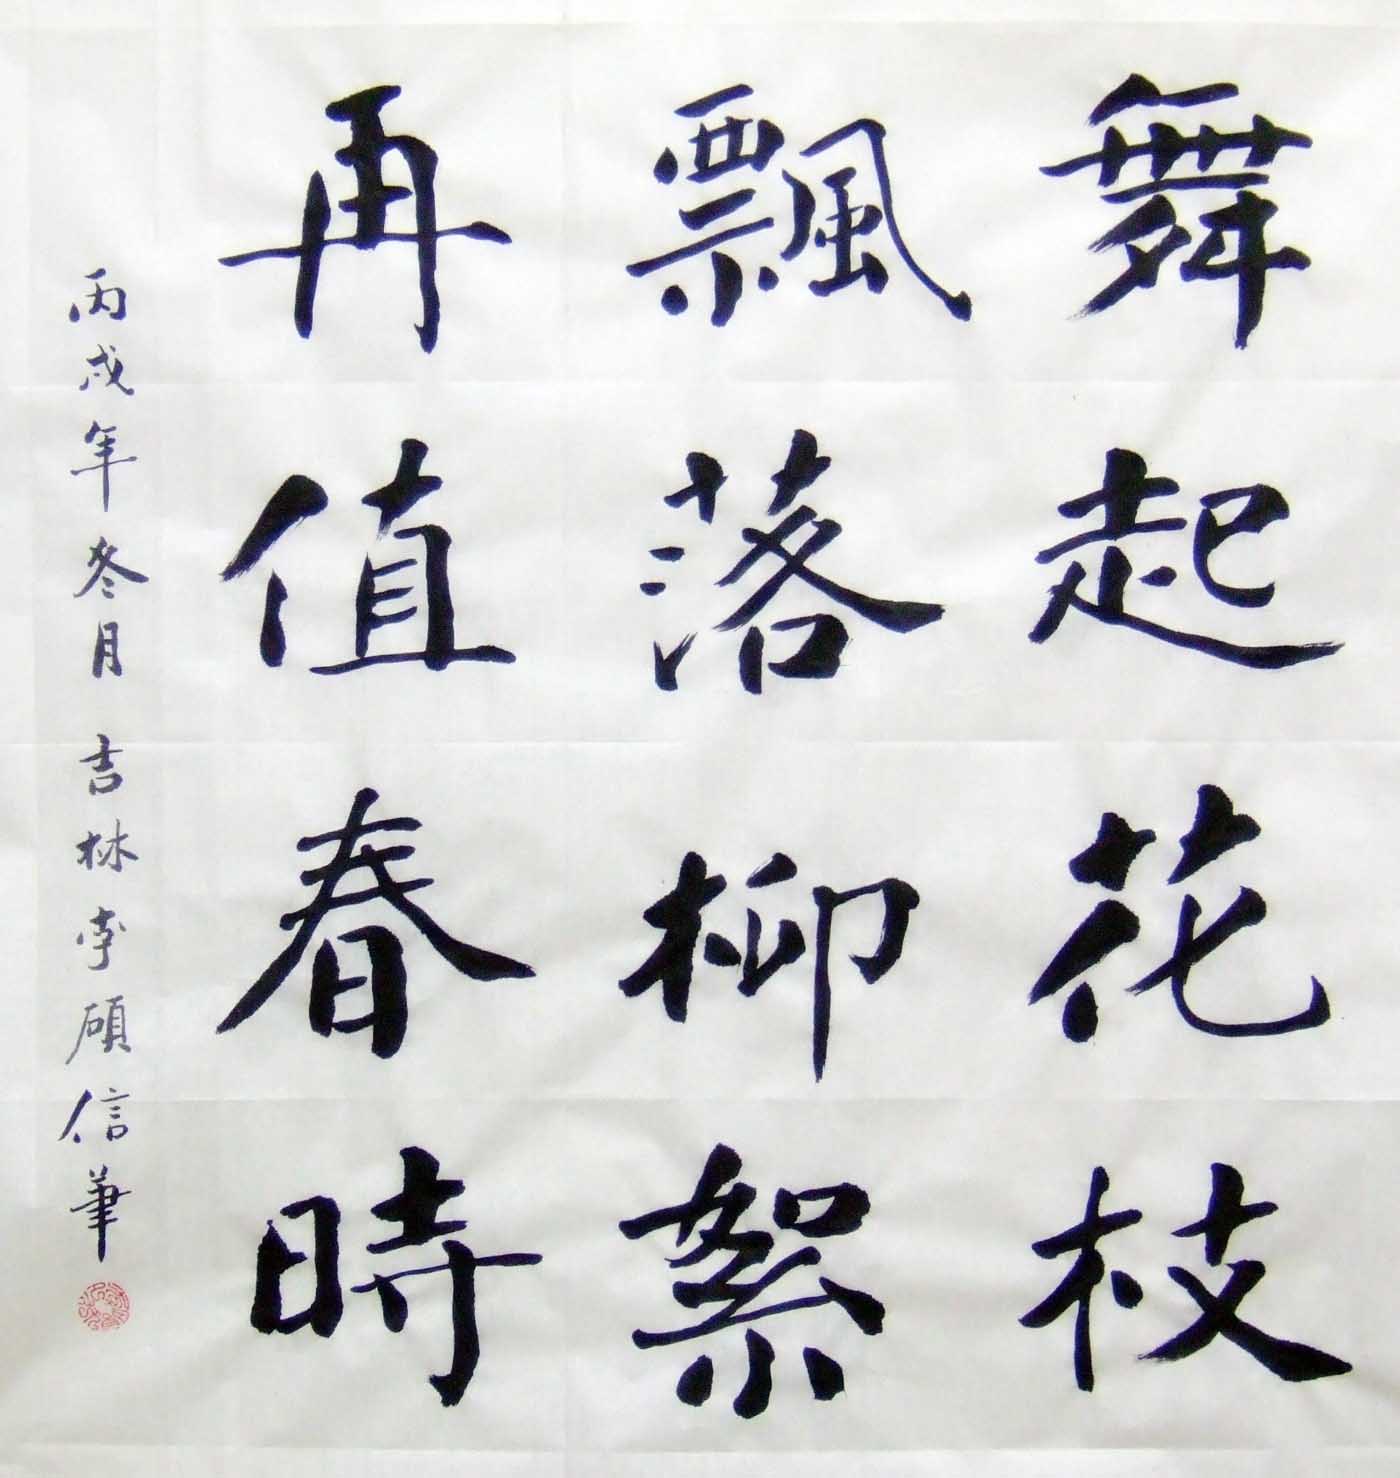 舞起花枝
飄落柳絮
再值春時
丙戌年冬月 吉林李碩信筆